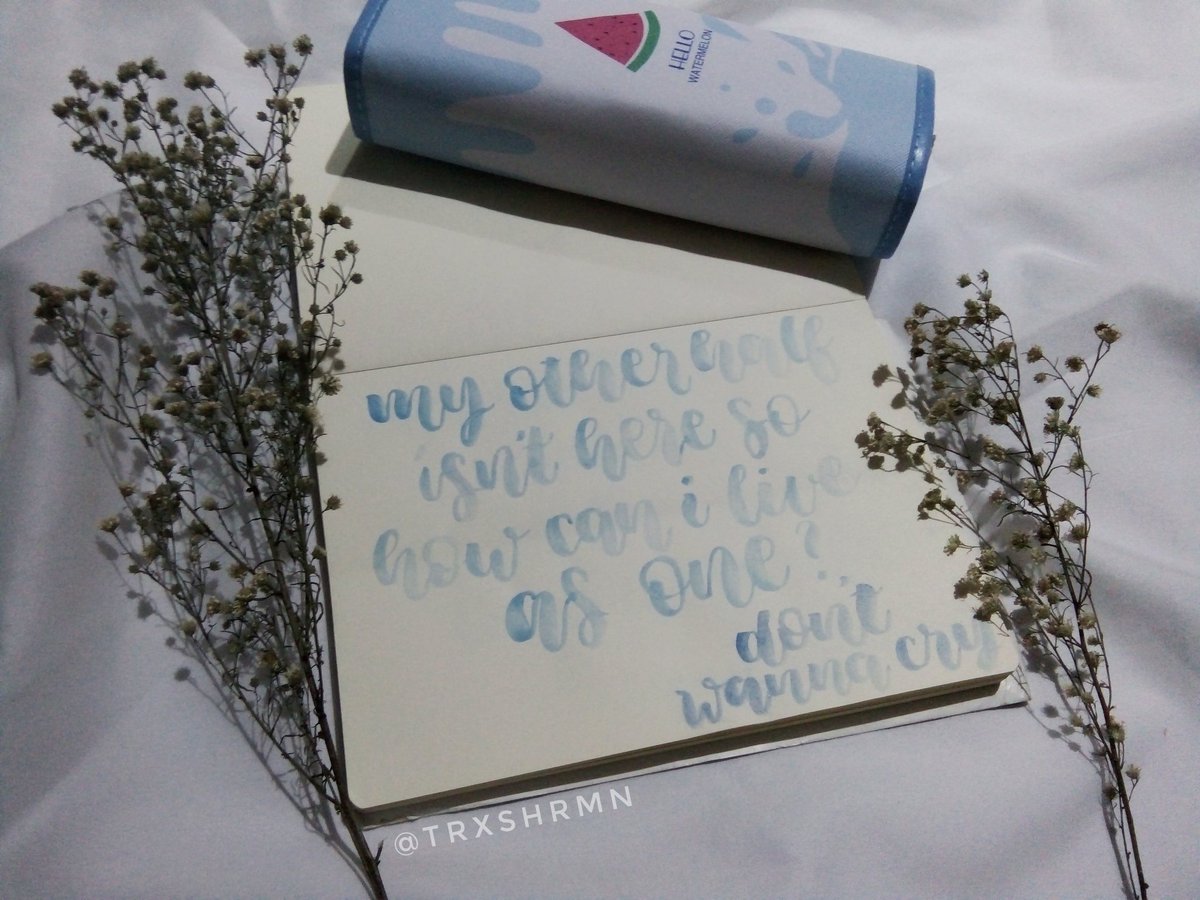 HELLO
WATERMELON
my other half
isn't here so
how can i live
as one?
don't
wanna cry
@TRXSHRMN